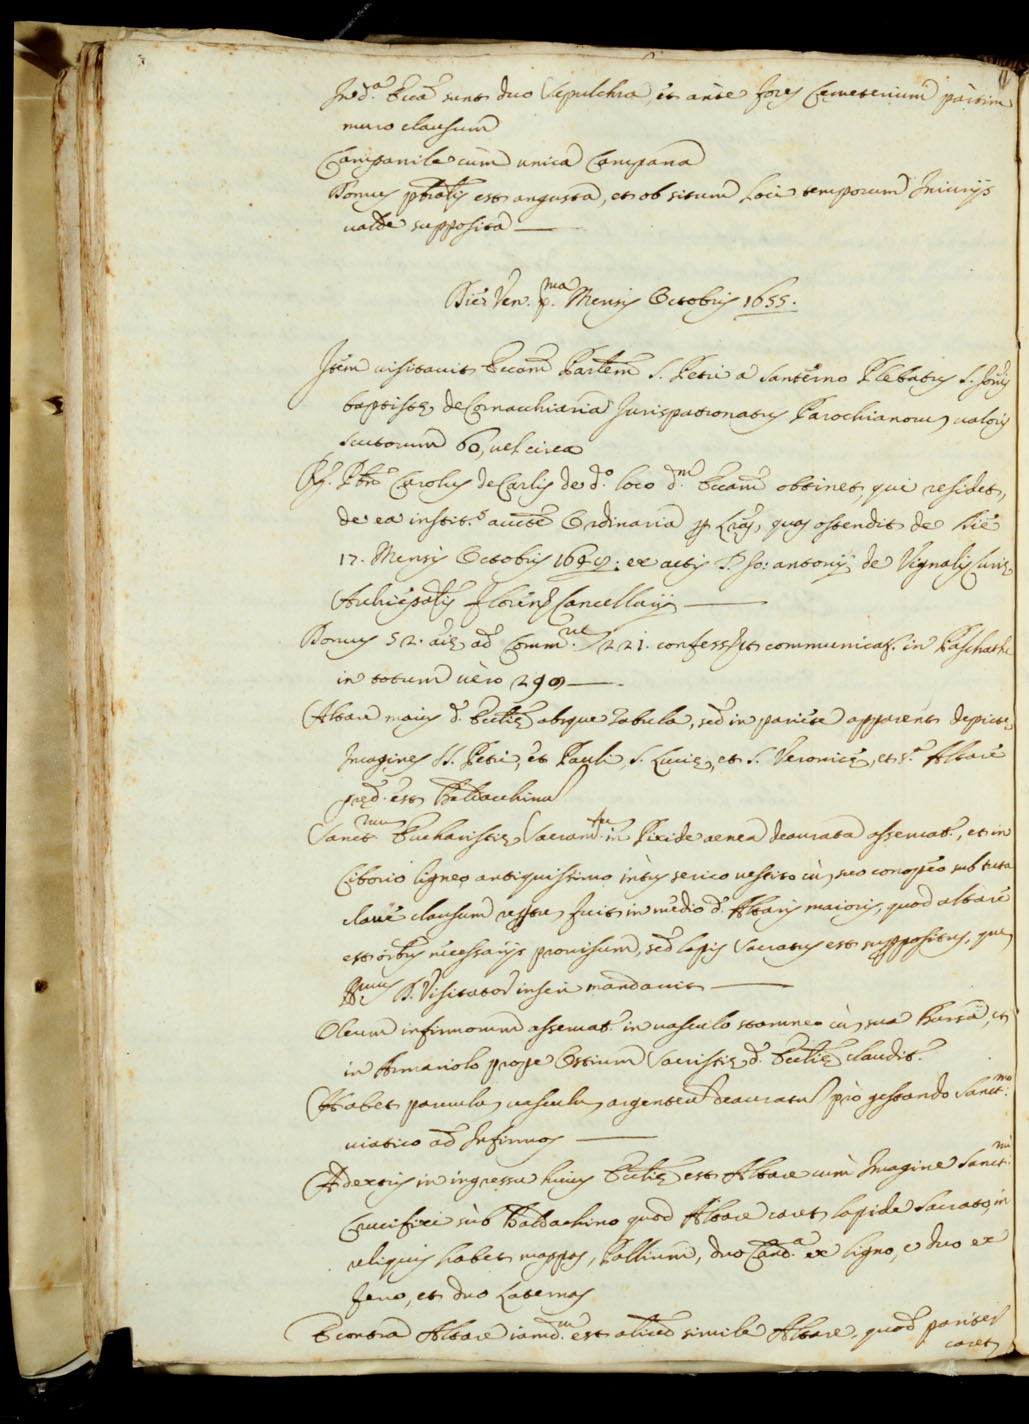 In d.a Ecc.a sunt duo Sepulchra, et ante fores Cemeterium partim
muro clausum
Campanile cum unica Campana
Domus p̄b̄ralis est angusta, et ob situm loci temporum Iniurijs
valde supposita
Die Ven. p.ma Mensis Octobris 1655.
Item visitauit Ecc.am Par.lem S. Petri a Santerno Plebatus S. Jo̅nis
baptistę de Cornacchiaria Jurispatronatus Parochianorum valoris
scutorum 60, uel circa
R. P̄b̄r Carolus de Carlis de d.o loco d.m Ecc.am obtinet, qui residet,
de ea instit.s auct̄e Ordinaria p̱ Lr̄as, quas ostendit de Die
17. Mensis Octobris 1649: ex actis S. Jo: antonij de Vignalis Curię
Archiepālis Floren. Cancellarij
Domus 52. aīę ad Comm.ne 221. confess. et communicat. in Paschate
in totum uero 290
Altare maius d. Eccl.ę absque Tabula, sed in pariete apparent depictę
Imagines SS. Petri, et Pauli, S. Lucię, et S. Veronicę, et s.a Altare
pręd. est Baldacchinu
Sanct.mum Eucharistię Sacram.tu in Pixide aenea deaurata asseruat.r, et in
Ciborio ligneo antiquissimo intus serico uestito cū suo conopeo sub tuta
claue clausum rep̱tu fuit in medio d. Altaris maioris, quod altare
est oībus necessarijs prouisum, sed lapis Sacratus est suppositus, quę
D. Visitator inseri mandauit
Oleum infirmorum asseruat.r in uasculo stamneo cū sua Bursa, et
in Armariolo prope Ostium Sacristię d. Eccl.ę claudit.r
Habet paruulu uasculu argenteu deauratu pro gestando Sanct.mo
uiatico ad Infirmos
A dextris in ingressu huius Eccl.ę est Altare cum Imagine Sanct.mi
Crucifixi sub Baldachino quod Altare caret lapide Sacrato, in
reliquis habet mappas, Pallium, duo Cand.a ex ligno, e duo ex
ferro, et duo Laternas
E contra Altare iamd.m est aliud simile Altare, quod pariter
caret